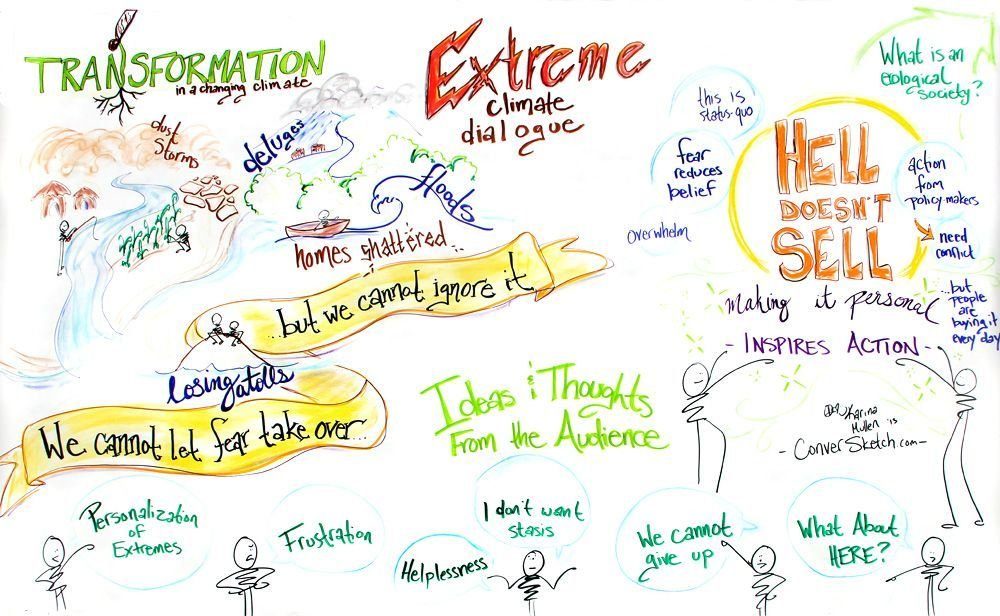 TRANSFORMATION
in a changing climate
dust
storms
deluges
floods
homes shattered...
...but we cannot ignore it
losing atolls
We cannot let fear take over...
Extreme
climate
dialogue
this is
status-quo
fear
reduces
belief
overwhelm
HELL
DOESN'T
SELL
What is an
ecological
society?
action
from
policy makers
need
conflict
...but
people
are
buying it
every day
making it personal
- INSPIRES ACTION -
Karina
Mullen '15
- ConverSketch.com -
Ideas & Thoughts
From the Audience
Personalization
of
Extremes
Frustration
Helplessness
I don't want
stasis
We cannot
give up
What About
HERE?